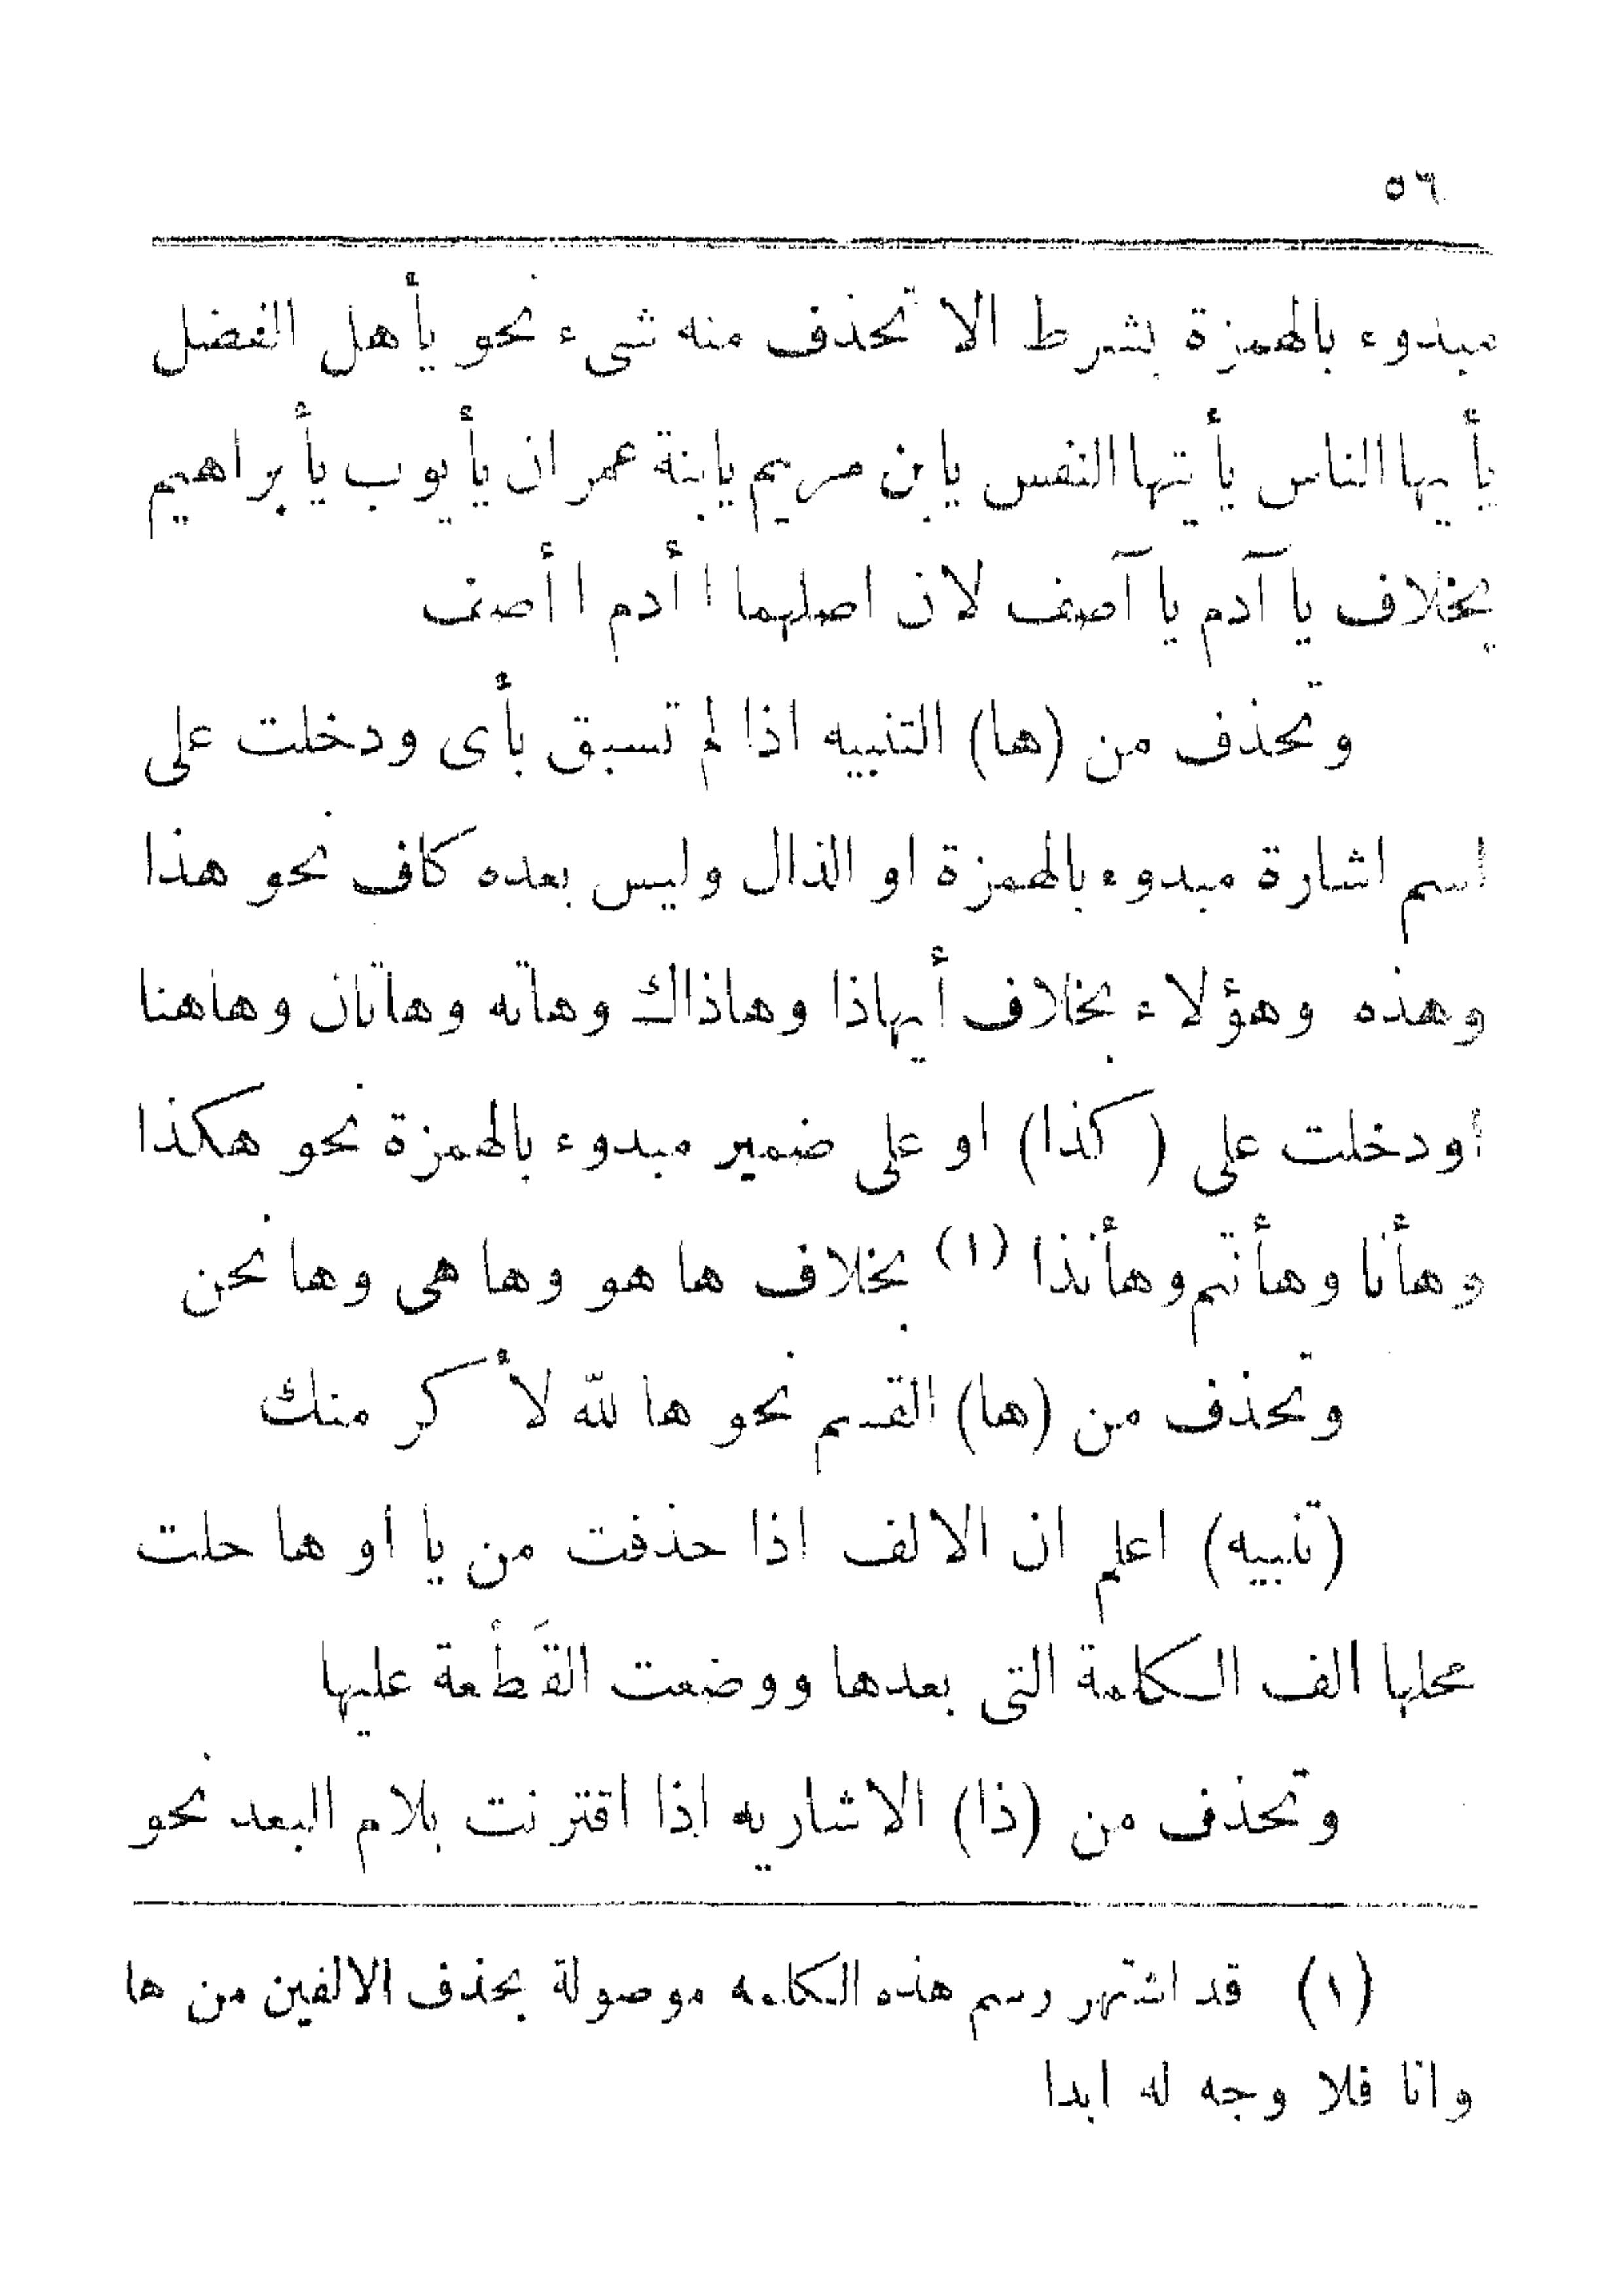 ٥٦
مبدوء بالهمزة بشرط الا تحذف منه شىء نحو يأهل الفضل
يأيها الناس يأيتها النفس يابن مريم يابنة عمران يأيوب يأبراهيم
بخلاف يا آدم يا آصف لان اصلهما اأدم اأصف
وتحذف من (ها) التنبيه اذا لم تسبق بأى ودخلت على
اسم اشارة مبدوء بالهمزة او الذال وليس بعده كاف نحو هذا
وهذه وهؤلاء بخلاف أيهاذا وهاذاك وهاته وهاتان وهاهنا
اودخلت على (كذا) او على ضمير مبدوء بالهمزة نحو هكذا
وهأنا وهأنتم وهأنذا (١) بخلاف ها هو وها هى وها نحن
وتحذف من (ها) القسم نحو ها لله لأ كر منك
(تنبيه) اعلم ان الالف اذا حذفت من يا او ها حلت
محلها الف الكلمة التى بعدها ووضعت القَطْعة عليها
وتحذف من (ذا) الاشاريه اذا اقترنت بلام البعد نحو
(١) قد اشتهر رسم هذه الكلمه موصولة بحذف الالفين من ها
وانا فلا وجه له ابدا